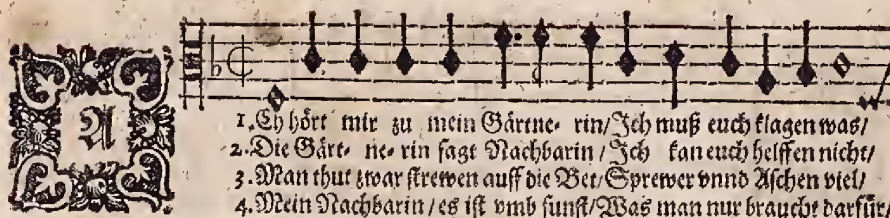 A
1. Ch hört mir zu mein Gärtne- rin/Ich muß euch klagen was/
2. Die Gärt- ne- rin sagt Nachbarin/Ich kan euch helffen nicht/
3. Man thut zwar strewen auff die Bet/Sprewer vnnd Aschen viel/
4. Mein Nachbarin/es ist vmb sunst/Was man nur braucht darfür/